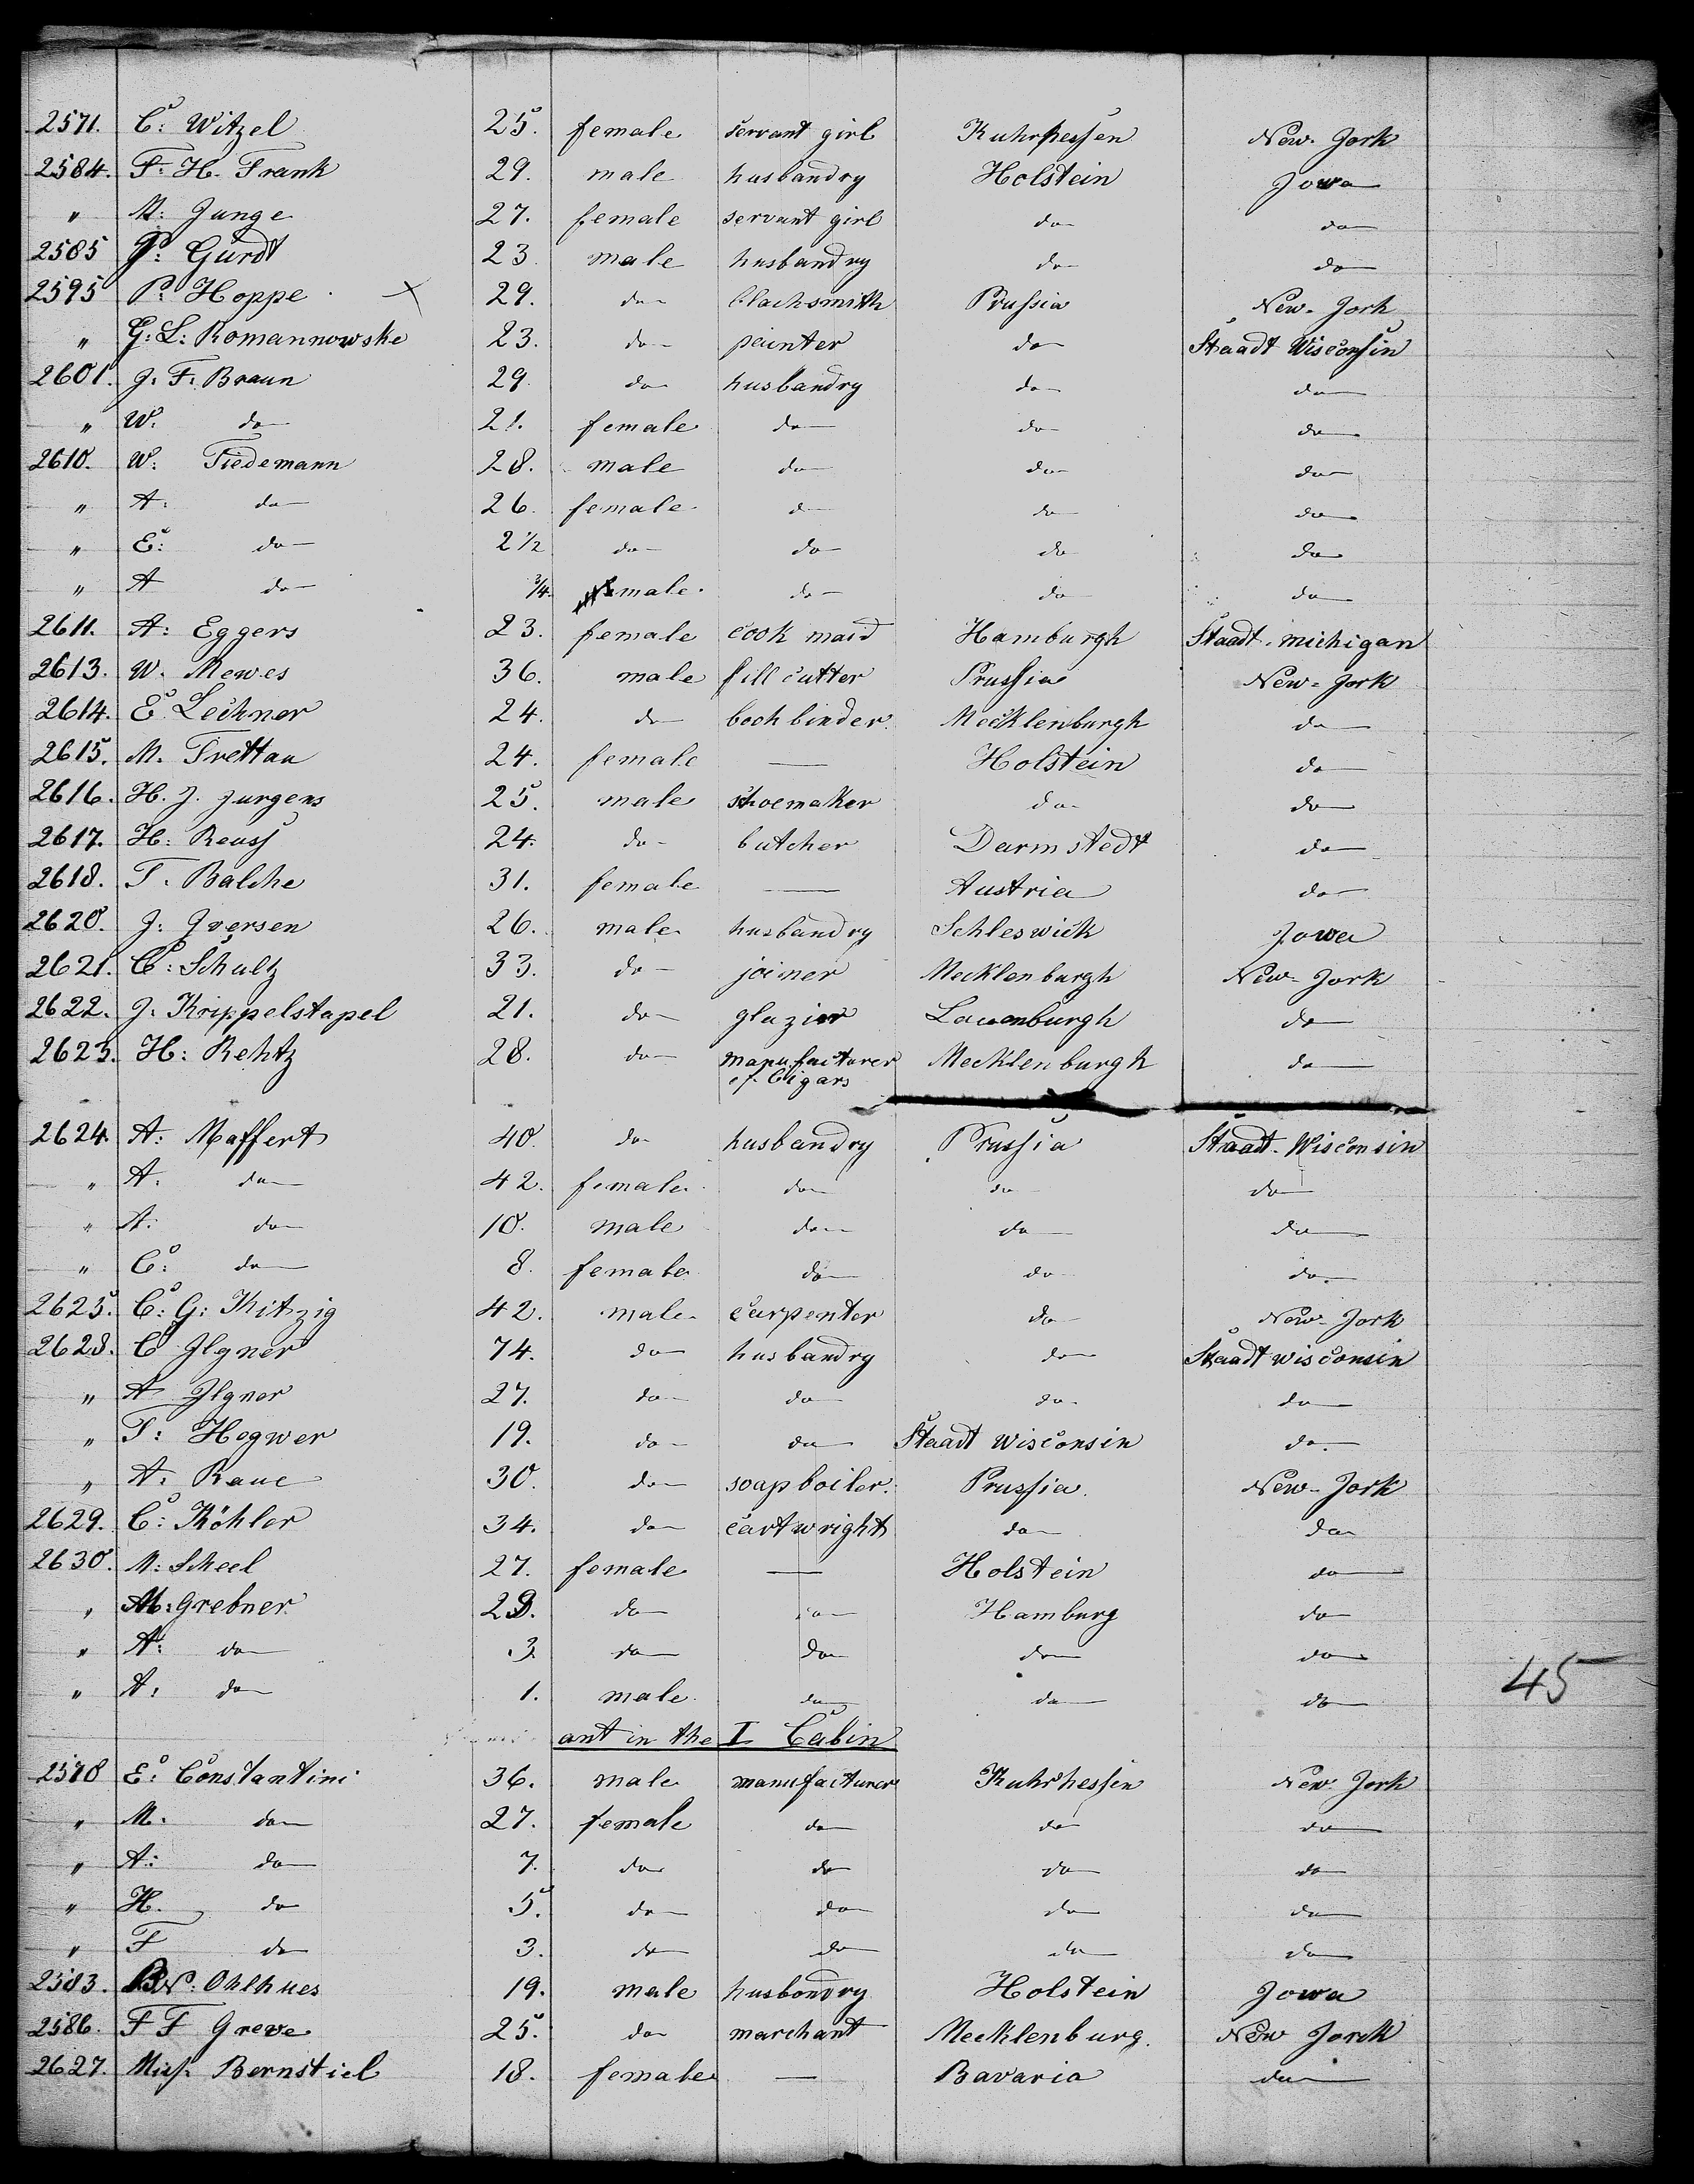 2571. C: Witzel 25. female servant girl Kuhrhessen New-York
2584. F: H. Frank 29. male husbandry Holstein Jowa
" M: Junge 27. female servant girl do do
2585 P: Gurdt 23 male husbandry do do
2595 P: Hoppe X 29. do blacksmith Prussia New-York
" G: L: Romannowske 23. do painter do Staadt Wisconsin
2601. J: F: Braun 29 do husbandry do do
" W. do 21. female do do do
2610. W: Tiedemann 28. male do do do
" A: do 26. female do do do
" E: do 2 1/2 do do do do
" A do 3/4. male. do do do
2611. A: Eggers 23. female cook maid Hamburgh Staadt. michigan
2613. W. Mewes 36. male fill cutter Prussia New-York
2614. E Lechner 24. do bookbinder. Mecklenburgh do
2615. M. Trettau 24. female — Holstein do
2616. H. J. Jurgens 25. male shoemaker do do
2617. H: Reuss 24. do butcher Darmstedt do
2618. T. Balche 31. female — Austria do
2620. J: Jversen 26. male husbandry Schleswick Jowa
2621. C: Schultz 33. do joiner Mecklenburgh New-York
2622. J: Krippelstapel 21. do glazier Lauenburgh do
2623. H: Rehtz 28. do manufacturer Mecklenburgh do
of Cigars
2624. A: Maffert 40. do husbandry Prussia Staadt-Wisconsin
" A: do 42. female do do do
" A. do 10. male do do do
" C: do 8. female do do do.
2625. C: G: Kitzig 42. male carpenter do New-York
2628. C Jlgner 74. do husbandry do Staadt wisconsin
" A Jlgner 27. do do do do
" T: Hegwer 19. do do Staadt Wisconsin do.
" A: Raue 30. do soapboiler. Prussia. New-York
2629. C: Köhler 34. do cartwright do do
2630. M: Scheel 27. female — Holstein do
" M: Grebner 29. do do Hamburg do
" A: do 3 do do do do
" A: do 1. male do do do 45
ant in the I Cabin
2570 E: Constantini 36. male manufacturer Kuhrhessen New York
" M: do 27. female do do do
" A: do 7. do do do do
" H. do 5. do do do do
" F do 3. do do do do
2583. N: Ohlhues 19. male husbondry Holstein Jowa
2586. F F Greve 25. do marchant Mecklenburg. New Jorck
2627. Miss Bernstiel 18. female — Bavaria do